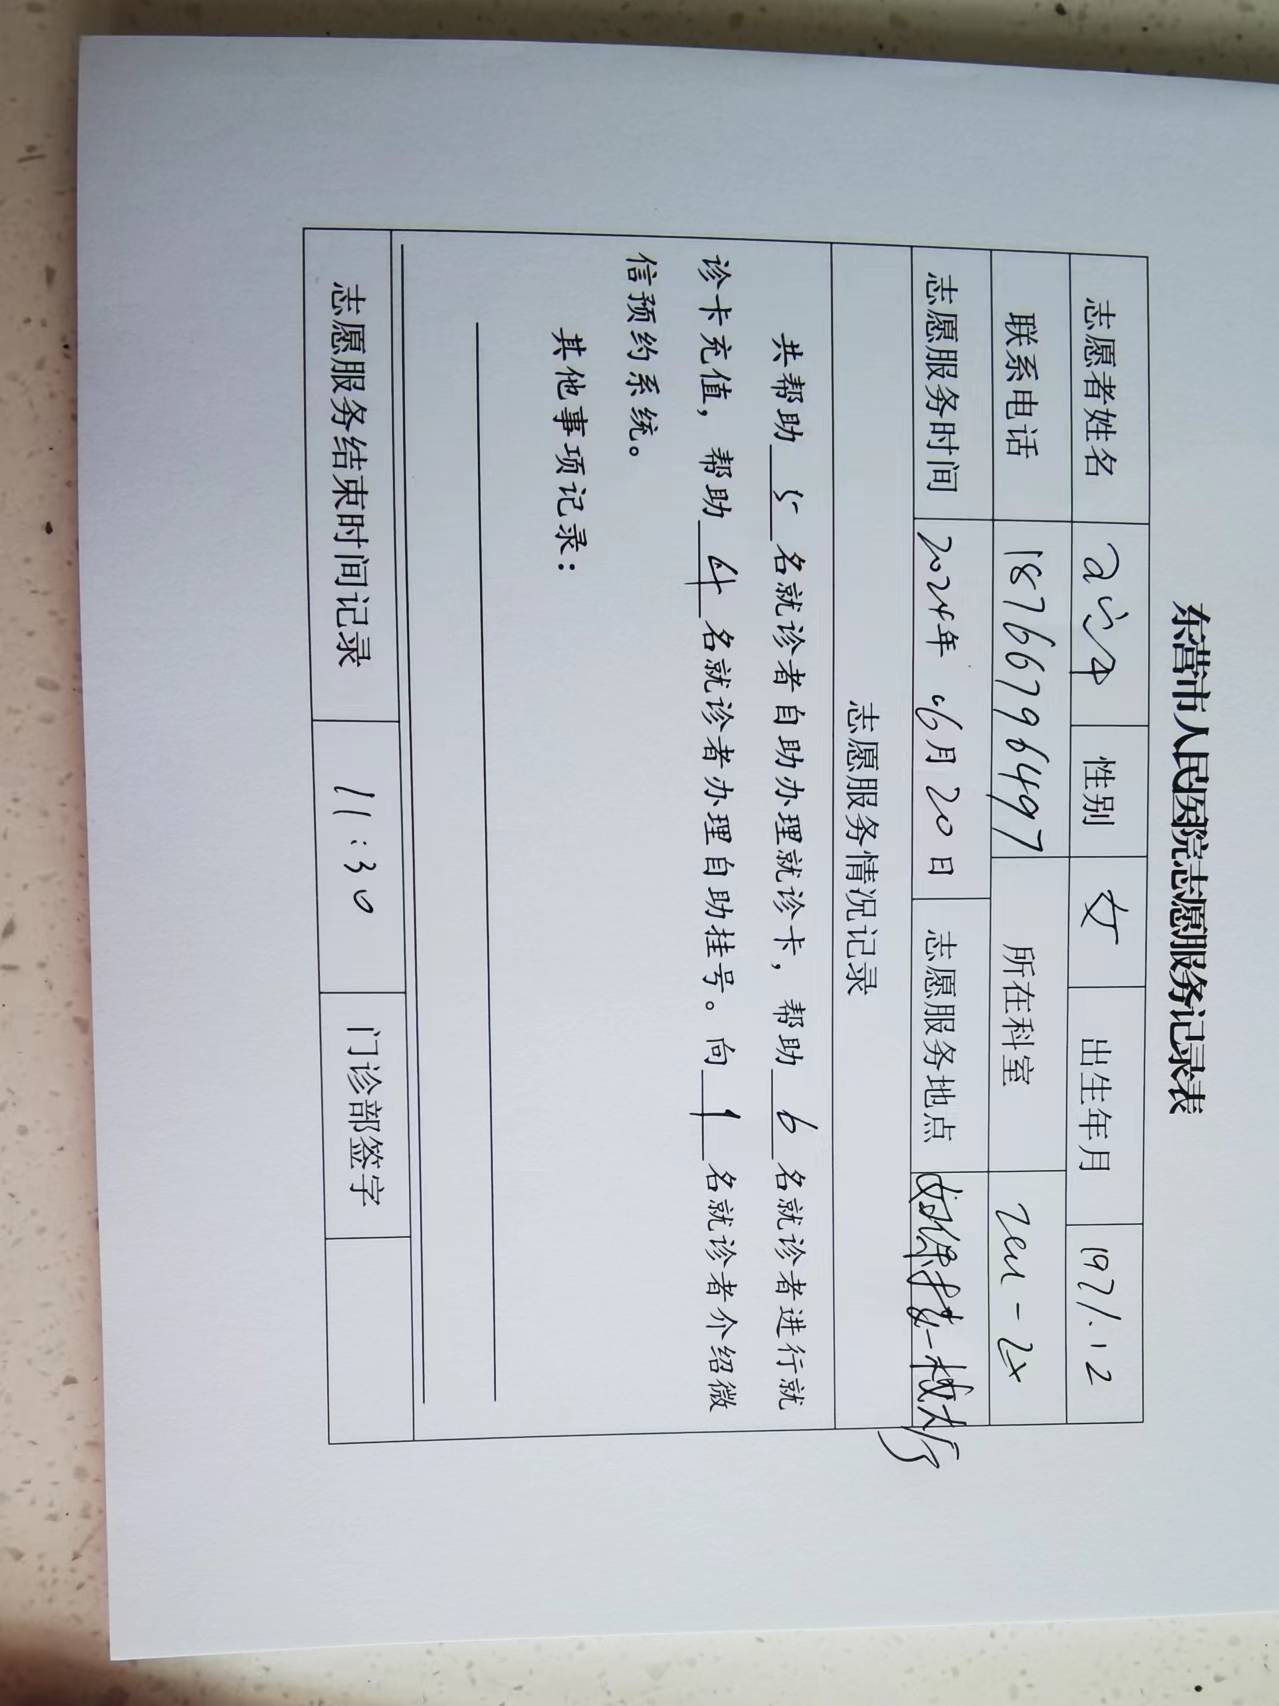 东营市人民医院志愿服务记录表
志愿者姓名 性别 女 出生年月 1971.12
联系电话 18766796497 所在科室
志愿服务时间 2024年 6月 20日 志愿服务地点
志愿服务情况记录
共帮助 5 名就诊者自助办理就诊卡，帮助 6 名就诊者进行就
诊卡充值，帮助 4 名就诊者办理自助挂号。向 1 名就诊者介绍微
信预约系统。
其他事项记录：
志愿服务结束时间记录 11:30 门诊部签字